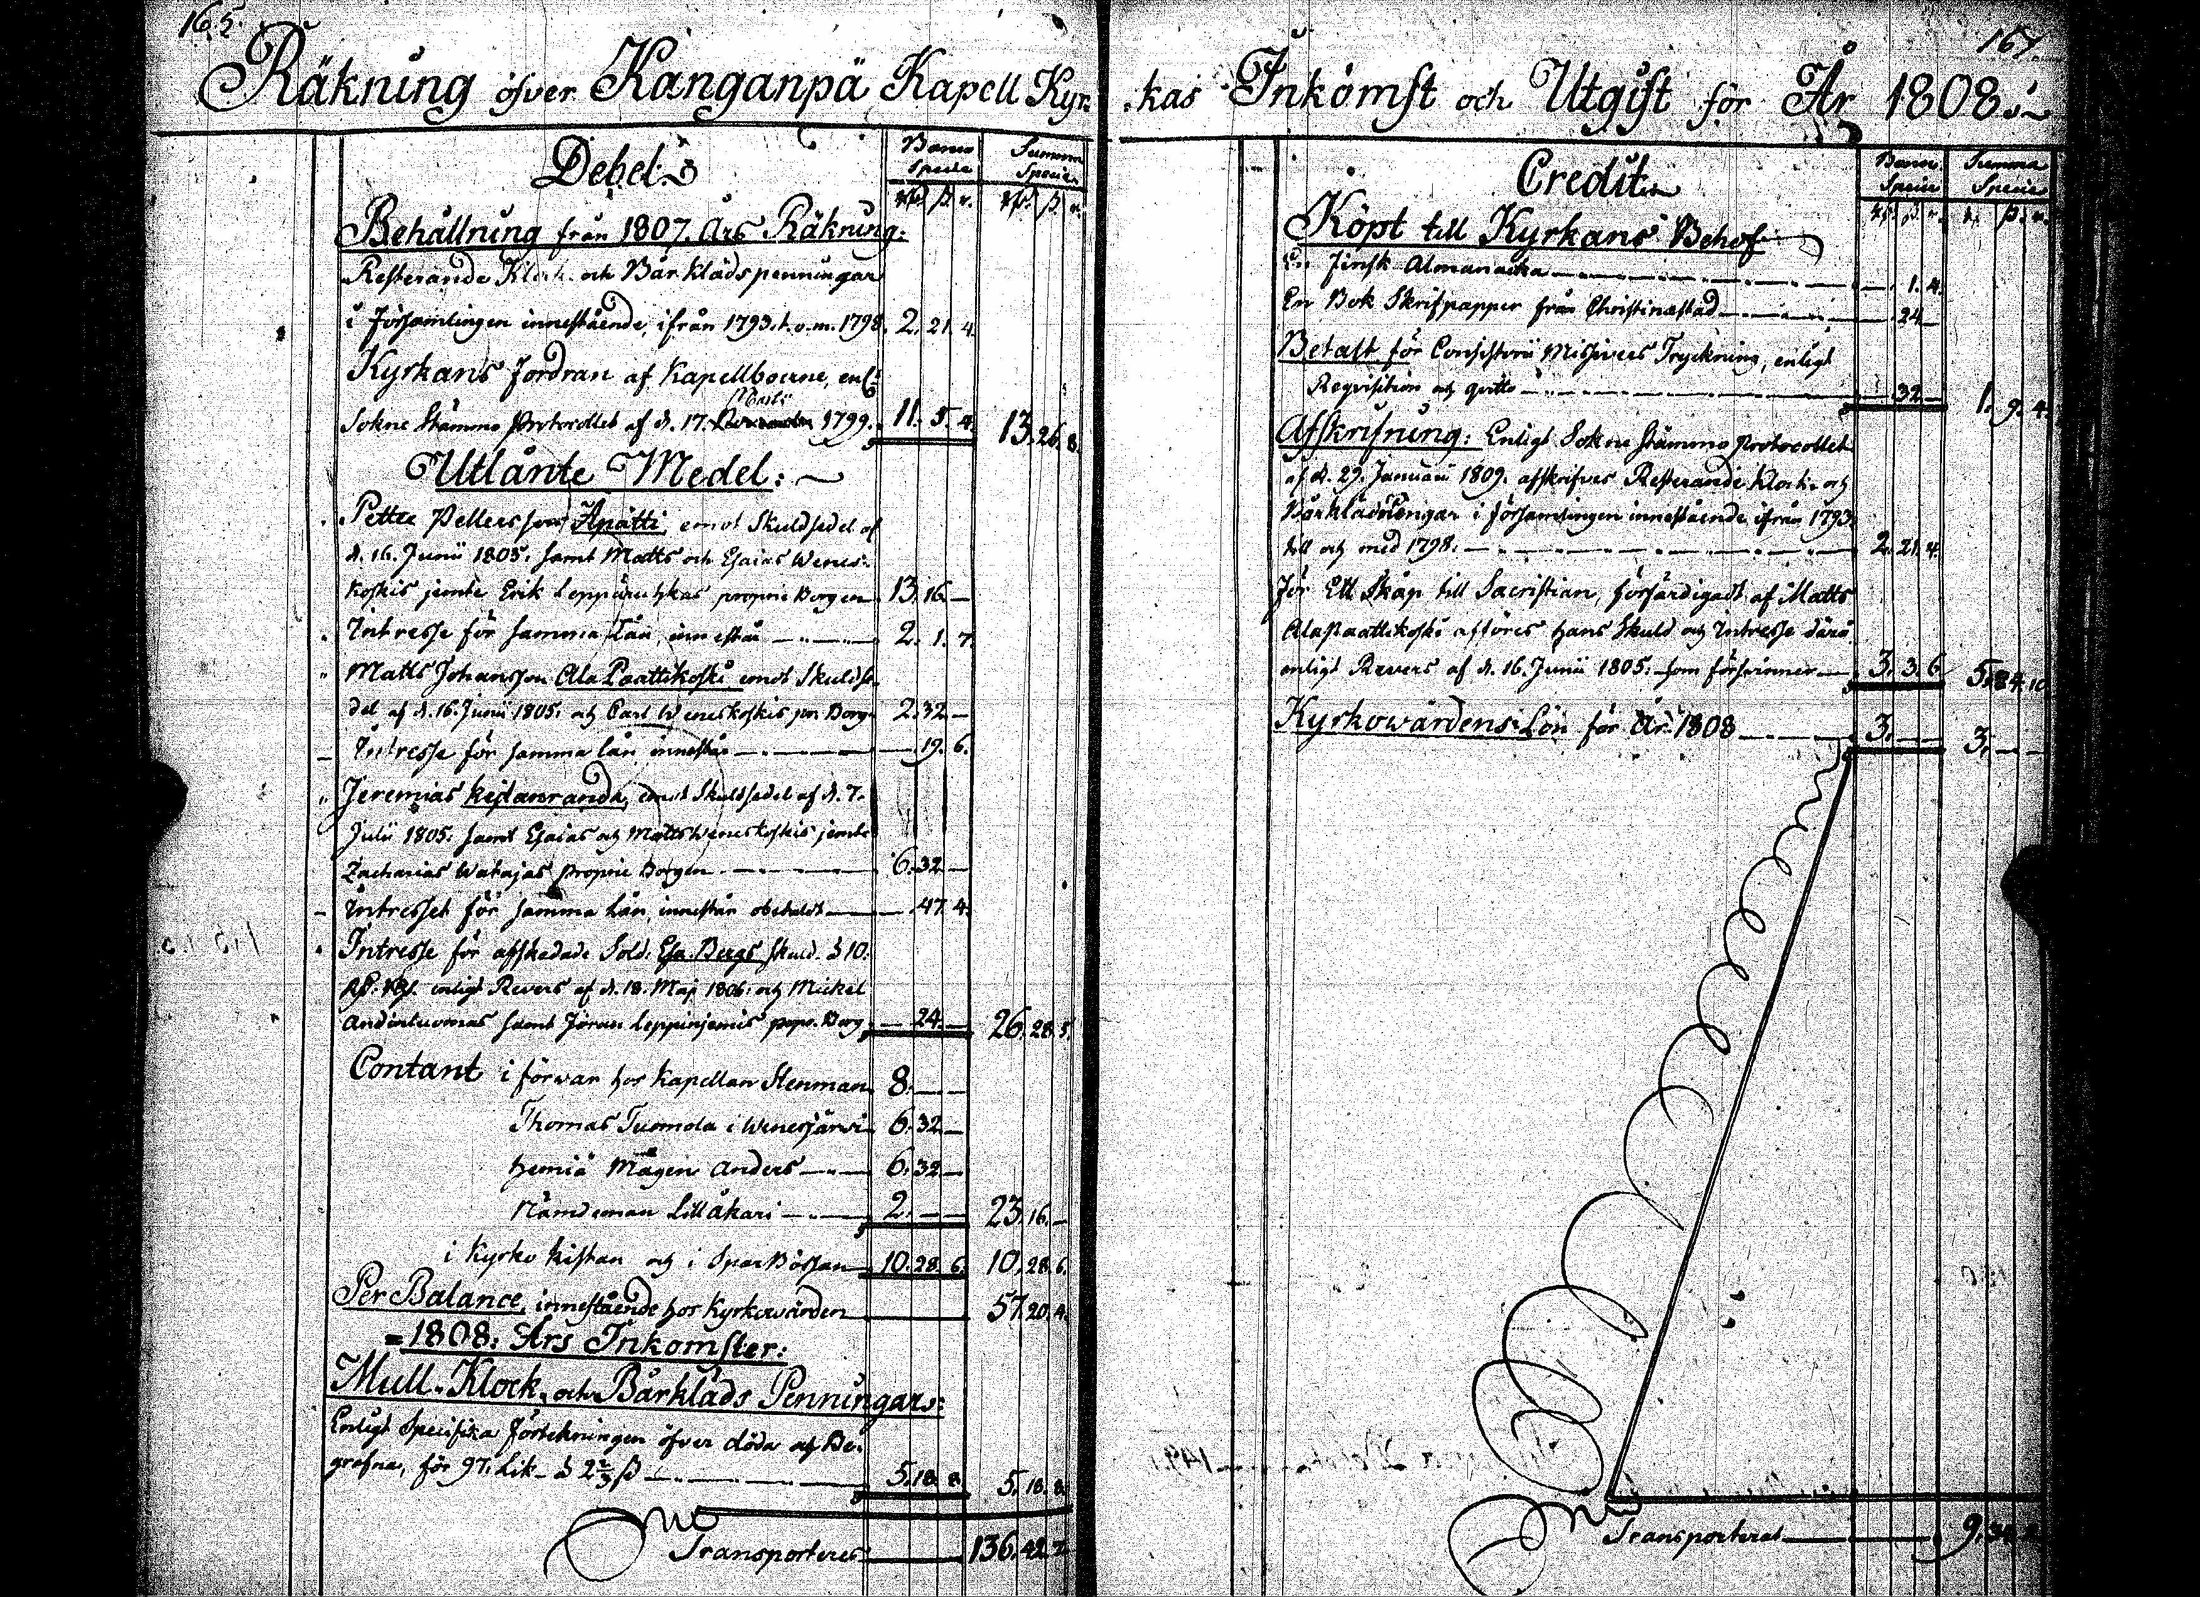 165.
Räkning öfver Kanganpä Kapell Kyr-
Debet
Banco Specie
Summa Specie
Behållning från 1807. Års Räkning:
Resterande Klock- och Bårklädspenningar
i Församlingen innestående, ifrån 1793. t.o.m. 1798. 2. 21. 4.
Kyrkans Fordran af Kapellboerne, enl:
Martii
Sokne Stämmo Protocollet af d. 17. 1799. 11. 5. 4. 13. 26. 8.
Utlånte Medel:
Petter Pettersson Apatti, emot Skuldsedel af
d. 16. Junii 1805. samt Matts och Esaias Wenes-
koskis jemte Erik proprie Borgen 13. 16. —
Intresse för samma Lån, innestår 2. 1. 7.
Matts Johansson Ala Paattikoski emot Skuldse-
del af d. 16. Junii 1805. och Carl Weneskoskis pr. Borg. 2. 32. —
Intresse för samma lån innestår — 19. 6.
Jeremias Keisanranda, emot Skuldsedel af d. 7.
Julii 1805. samt Esaias och Matts Weneskoskis jemte
Zacharias Watajas proprie Borgen 6. 32. —
Intresset för samma Lån, innestår obetaldt — 47. 4.
Intresse för afskedade Sold. Esa. Bergs skuld. à 10.
enligt Revers af d. 18. Maj 1806. och Mickel
samt Jöran Leppinjemis propr. Borg. — 24. — 26. 28. 5.
Contant i förwar hos Kapellan Stenman 8. — —
Thomas Tuomola i Wenesjärwi 6. 32. —
Hemiä Mågen Anders 6. 32. —
Nämdeman Lillåkari 2. — — 23. 16. —
i Kyrko kistan och i SparBössan 10. 28. 6. 10. 28. 6.
Per Balance, innestående hos Kyrkowärden 57. 20. 4.
= 1808: Års Inkomster:
Mull- Klock- och Bårkläds Penningar:
Enligt Specifika Förtekningen öfver döda och Be-
grafne, för 97. Lik à 2 2/3 ß 5. 18. 8. 5. 18. 8.
Transporteres 136. 42. 7.
167.
kas Inkomst och Utgift för År 1808.
Credit
Banco Specie
Summa Specie
Köpt till Kyrkans Behof
En Finsk Almanacka — 1. 4.
En Bok Skrifpapper från Christinæstad — 24. —
Betalt för Consistorii Missivers Tryckning, enligt
Reqvisition och qvitto — 32. — 1. 9. 4.
Afskrifning: Enligt Sokne Stämmo Protocollet
af d. 29. Januarii 1809. afskrifves Resterande Klock- och
i Församlingen innestående ifrån 1793.
till och med 1798. 2. 21. 4.
För Ett Skåp till Sacristian, förfärdigadt af Matts
Ala Paattikoski afföres hans Skuld och Intresse därå
enligt Revers af d. 16. Junii 1805. som försvinner 3. 3. 6.
Kyrkowärdens Lön för År 1808 3. — — 3. — —
Transporterat 9.